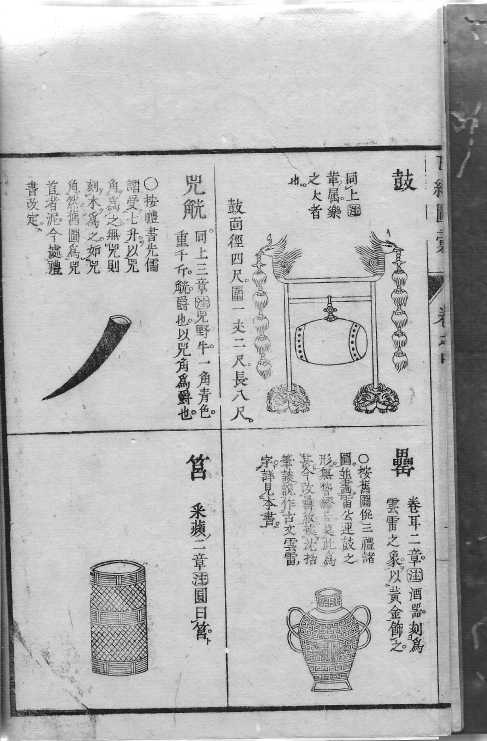 鼓
同上注
革属樂
之大者
也
鼓面徑四尺圍一丈二尺長八尺
兕觥
同上三章注兕野牛一角青色
重千斤觥爵也以兕角為爵也
○按禮書先儒
謂受七升以兕
角為之無兕則
刻木為之如兕
角然舊圖為兕
首者泥今據禮
書改定
罍
卷耳二章注酒器刻為
雲雷之象以黃金飾之
○按舊圖依三禮諸
圖並畫雷公連鼓之
形
筆談說作古文雲雷
字詳見本書
筥
采蘋二章注圓曰筥